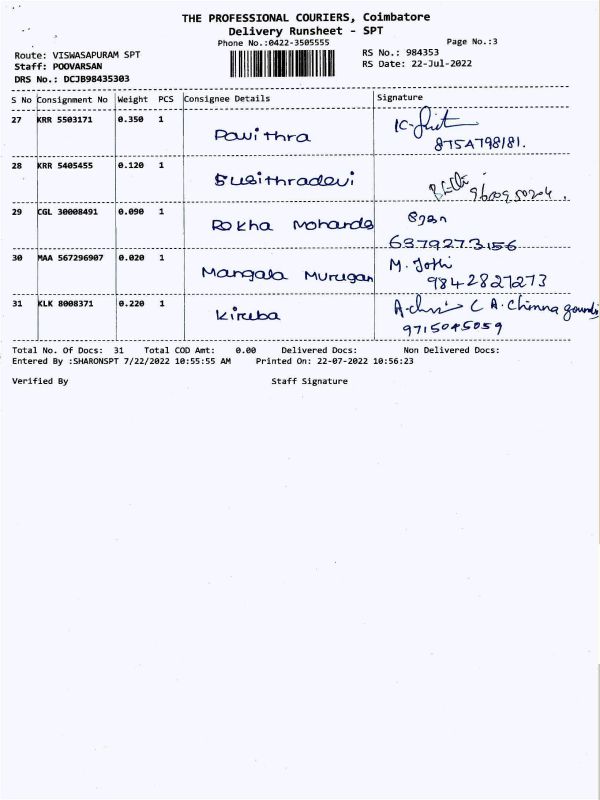 THE PROFESSIONAL COURIERS, Coimbatore
Delivery Runsheet - SPT
Phone No.:0422-3505555
Page No.:3
Route: VISWASAPURAM SPT
RS No.: 984353
Staff: POOVARSAN
RS Date: 22-Jul-2022
DRS No.: DCJB98435303
S No Consignment No Weight PCS Consignee Details Signature
27 KRR 5503171 0.350 1 Pavithra
8754798181.
28 KRR 5405455 0.120 1 Susithradevi
29 CGL 30008491 0.090 1 Rokha Mohands
6379273156
30 MAA 567296907 0.020 1 Mangala Murugan M. Jothi
9842827273
31 KLK 8008371 0.220 1 Kiruba
9715045059
Total No. Of Docs: 31 Total COD Amt: 0.00 Delivered Docs: Non Delivered Docs:
Entered By :SHARONSPT 7/22/2022 10:55:55 AM Printed On: 22-07-2022 10:56:23
Verified By Staff Signature